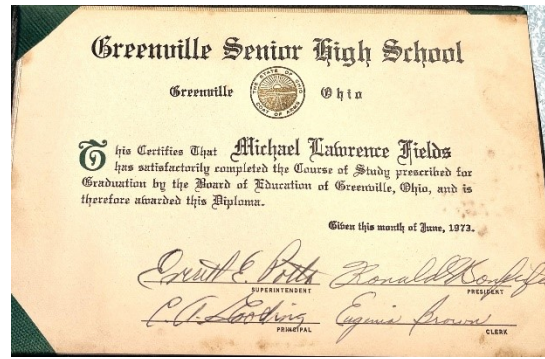 Greenville Senior High School
Greenville Ohio
THE STATE OF OHIO
COAT OF ARMS
This Certifies That Michael Lawrence Fields
has satisfactorily completed the Course of Study prescribed for
Graduation by the Board of Education of Greenville, Ohio, and is
therefore awarded this Diploma.
Given this month of June, 1973.
E. Potts Ronald
SUPERINTENDENT PRESIDENT
C. A. Gooding Eugenia Brown
PRINCIPAL CLERK